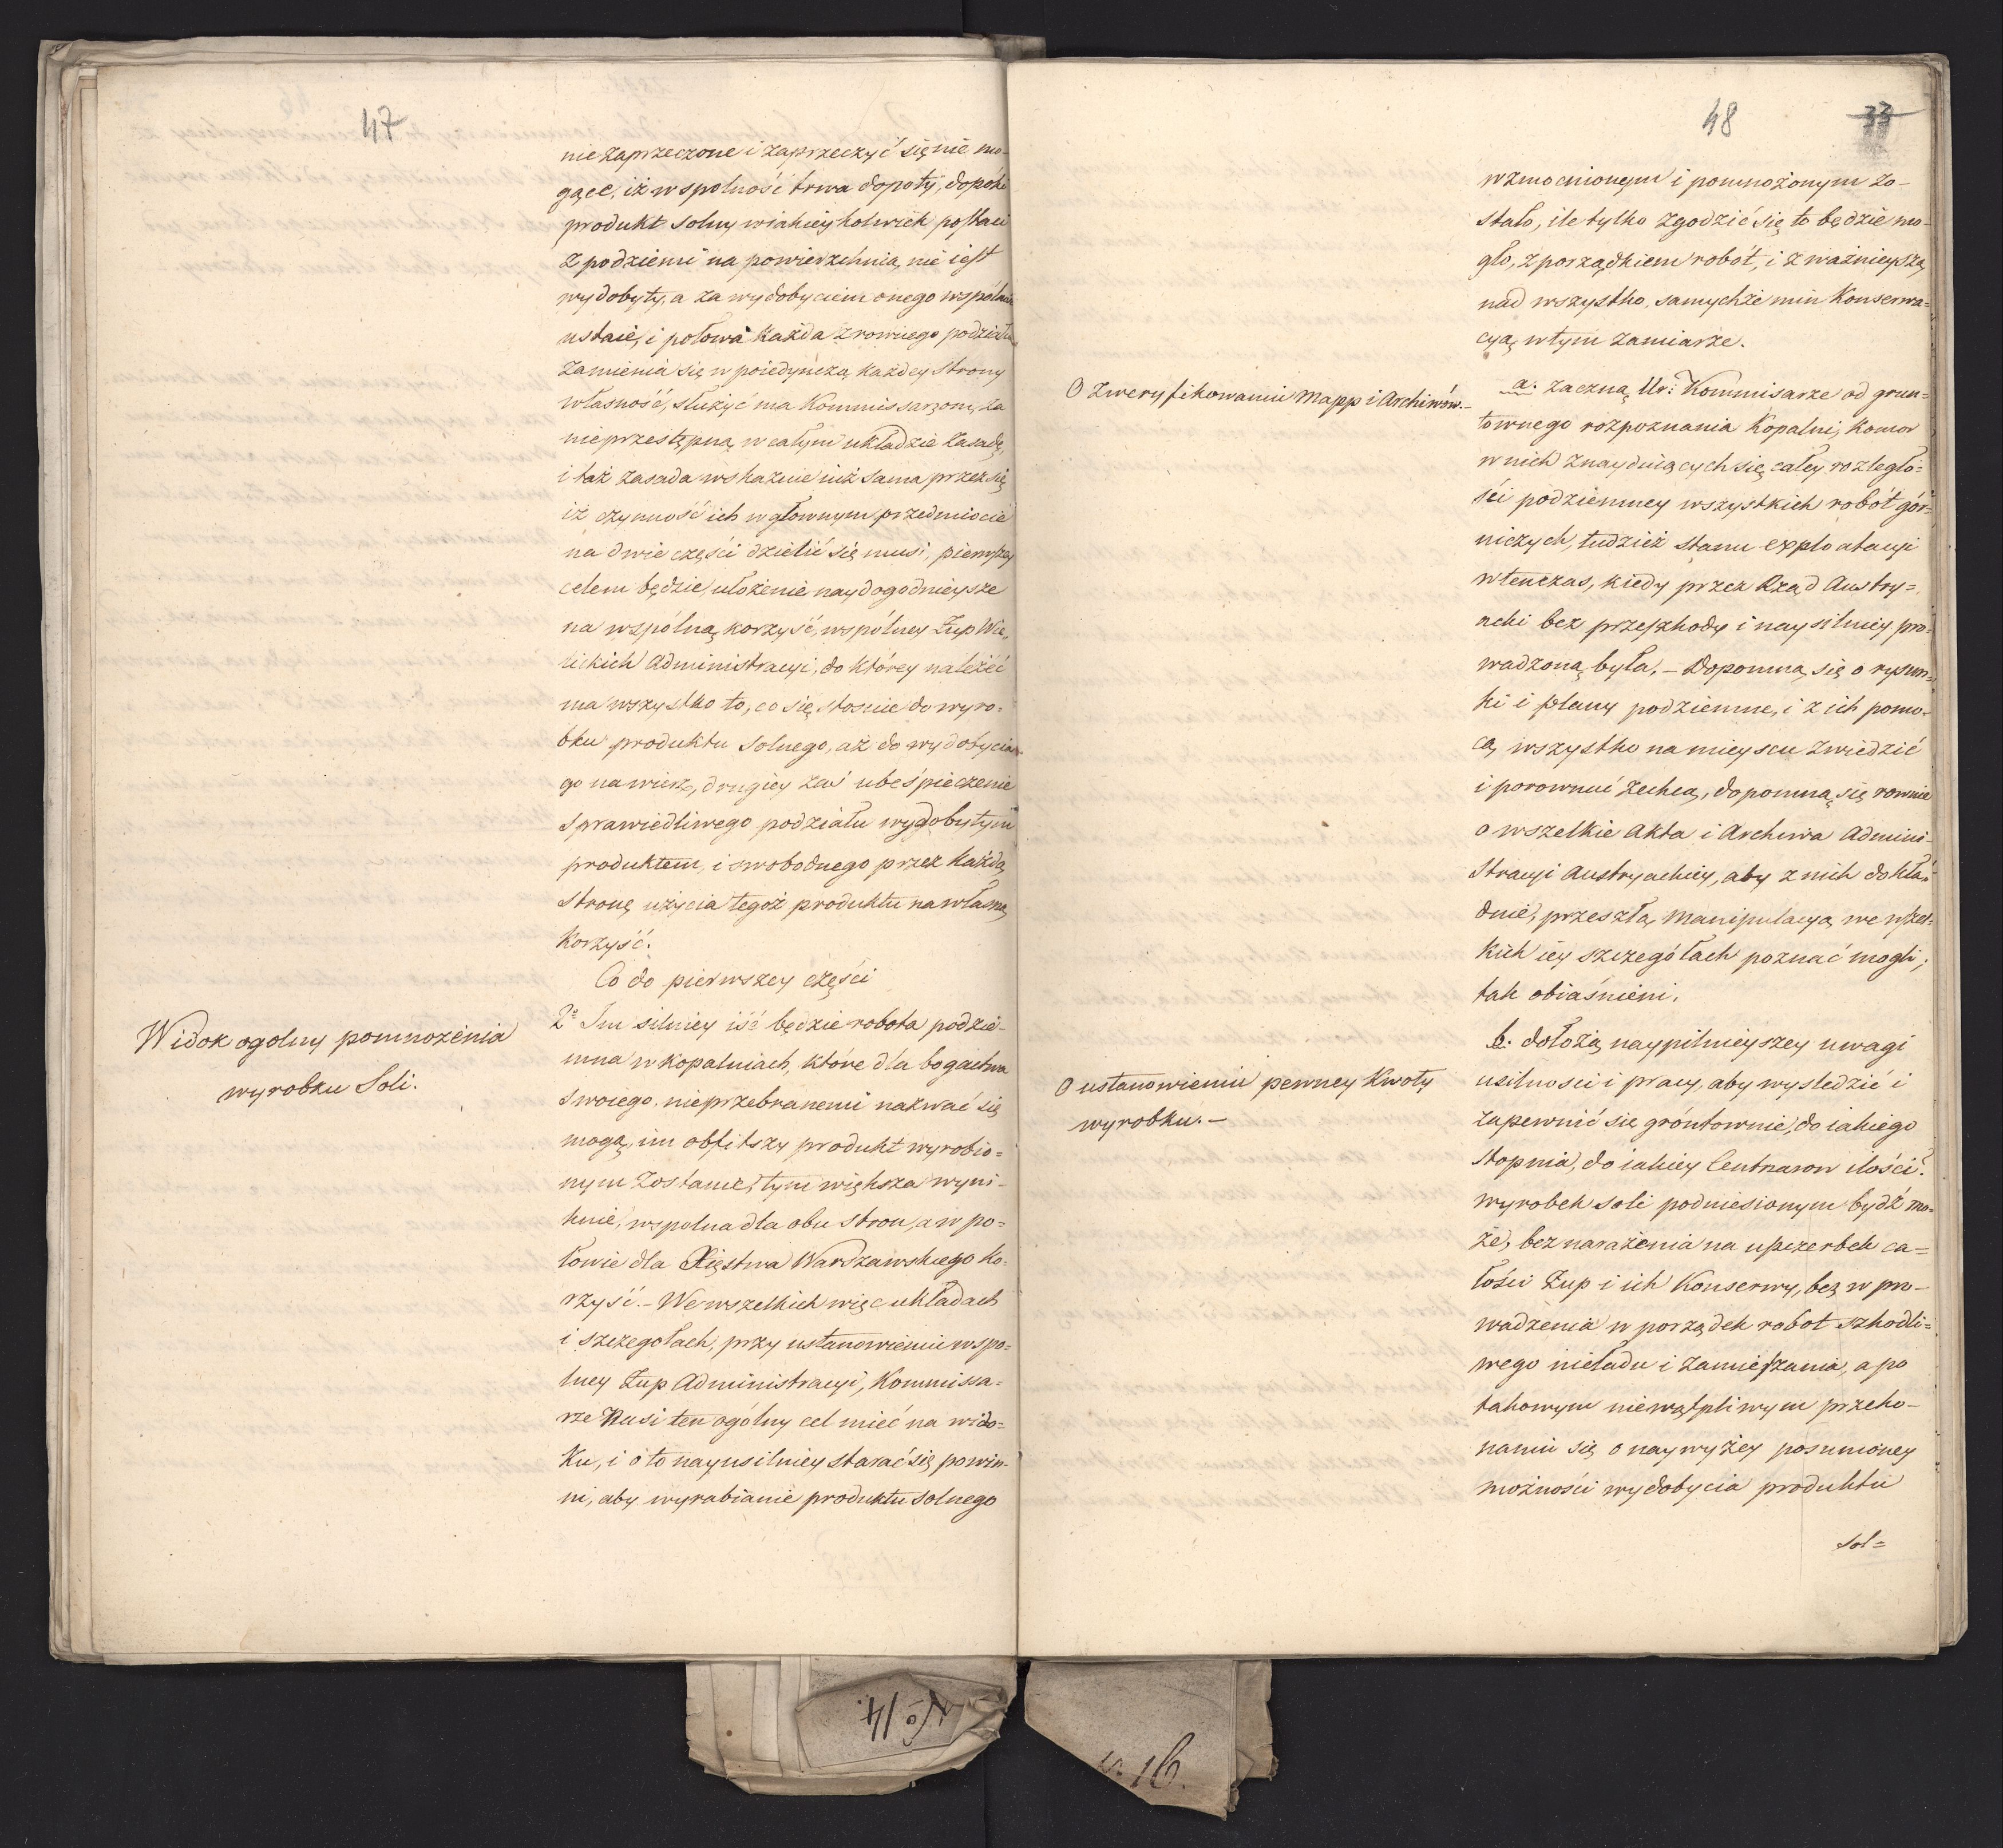 47
nie zaprzeczone i zaprzeczyć się nie mo-
gące, iż wspolność trwa dopoty, dopoki
produkt solny w iakieykolwiek postaci
z podziemi na powierzchnią nie iest
wydobyty, a za wydobyciem onego wspólnie
ustaie, i połowa każda z rownego podziału
zamienia się w poiedynczą każdey strony
własność, służyć ma Kommissarzom, za
nieprzestępną w całym układzie zasadę,
i taż zasada wskazuie iuż sama przez się
iż czynność ich w głownym przedmiocie
na dwie części dzielić się musi, pierwszey
celem będzie, ułożenie naydogodnieysze
na wspólną korzyść, wspólney Żup Wie-
lickich Administracyi, do którey należéć
ma wszystko to, co się stosuie do wyro-
bku produktu solnego, aż do wydobycia
go na wierz, drugiey zaś ubeśpieczenie
sprawiedliwego podziału wydobytym
produktem, i swobodnego przez każdą
stronę użycia tegoż produktu na własną
korzyść.
Co do pierwszey części
Widok ogolny pomnożenia
wyrobku Soli.
2º Im silniey iść będzie robota podzie-
mna w kopalniach, które dla bogactwa
swoiego nieprzebranemi nazwać się
mogą, im obfitszy produkt wyrobio=
nym zostanie, tym większa wyni-
knie, wspolna dla obu stron, a w po=
łowie dla Xięstwa Warszawskiego ko-
rzyść.- We wszelkich więc układach
i szczegołach, przy ustanowieniu wspo=
lney Żup Administracyi, Kommissa-
rze Nasi ten ogólny cel mieć na wido=
ku, i o to nayusilniey starać się powin-
ni, aby wyrabianie produktu solnego
48
33
wzmocnionym i pomnożonym zo-
stało, ile tylko zgodzić się to będzie mo-
gło, z porządkiem robót, i z ważnieyszą
nad wszystko, samychże min Konserwa=
cyą w tym zamiarze.
O zweryfikowaniu Mapp i Archiwów.-
a. zaczną Ur: Kommisarze od grun=
townego rozpoznania Kopalni, komor
w nich znayduiących się całey rozległo=
ści podziemney wszystkich robót gór=
niczych, tudzież stanu exploatacyi
wtenczas, kiedy przez Rząd Austry=
acki bez przeszkody i naysilniey pro=
wadzoną była.- Dopomną się o rysun=
ki i plany podziemne, i z ich pomo-
cą wszystko na mieyscu zwiedzić
i porownać zechcą, dopomną się rownie
o wszelkie Akta i Archiwa Admini-
stracyi Austryackiey, aby z nich dokła-
dnie, przeszłą manipulacyą we wszel-
kich iey szczegółach poznać mogli,
tak obiaśnieni.
O ustanowieniu pewney Kwoty
wyrobku.-
b. dołożą naypilnieyszey uwagi
usilnosci i pracy, aby wysledzić i
zapewnić się gróntownie, do iakiego
stopnia, do iakiey Centnarow ilości?
wyrobek soli podniesionym bydź mo=
że, bez narażenia na uszczerbek ca=
łości Żup i ich Konserwy, bez wpro-
wadzenia w porządek robot szkodli=
wego nieładu i zamieszania, a po
takowym niewątpliwym przeko-
naniu się o naywyżey posunioney
możności wydobycia produktu
sol=
No 14.
16.